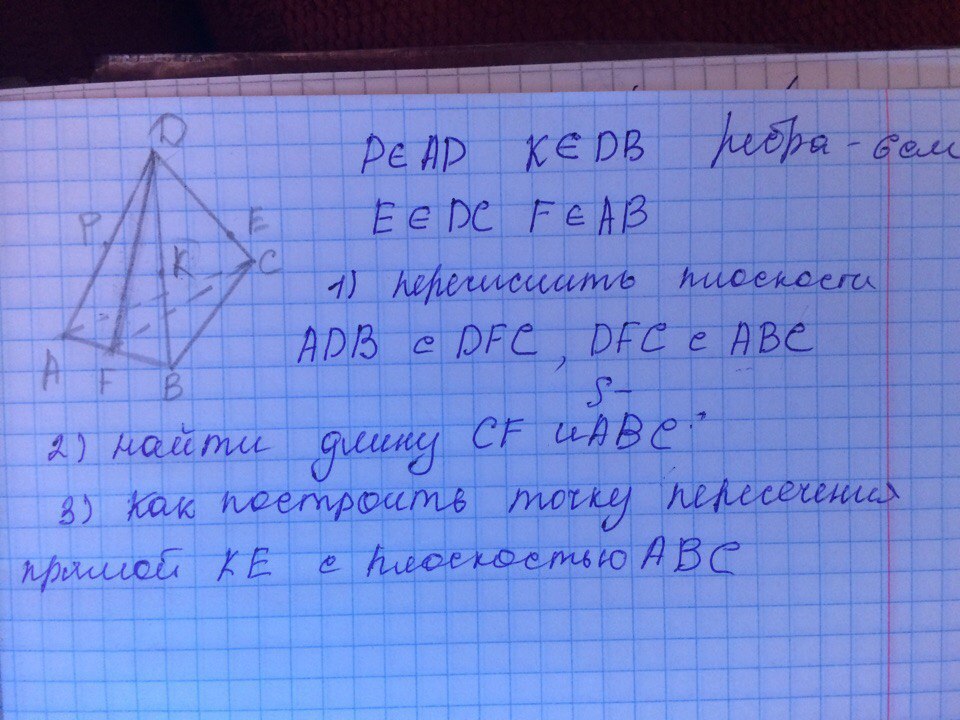 D
P
E
K
C
A
F
B
P∈AD K∈DB ребра - 6см
E∈DC F∈AB
1) перечислить плоскости
ADB с DFC, DFC с ABC
S-
2) найти длину CF и ABC
3) как построить точку пересечения
прямой KE с плоскостью ABC